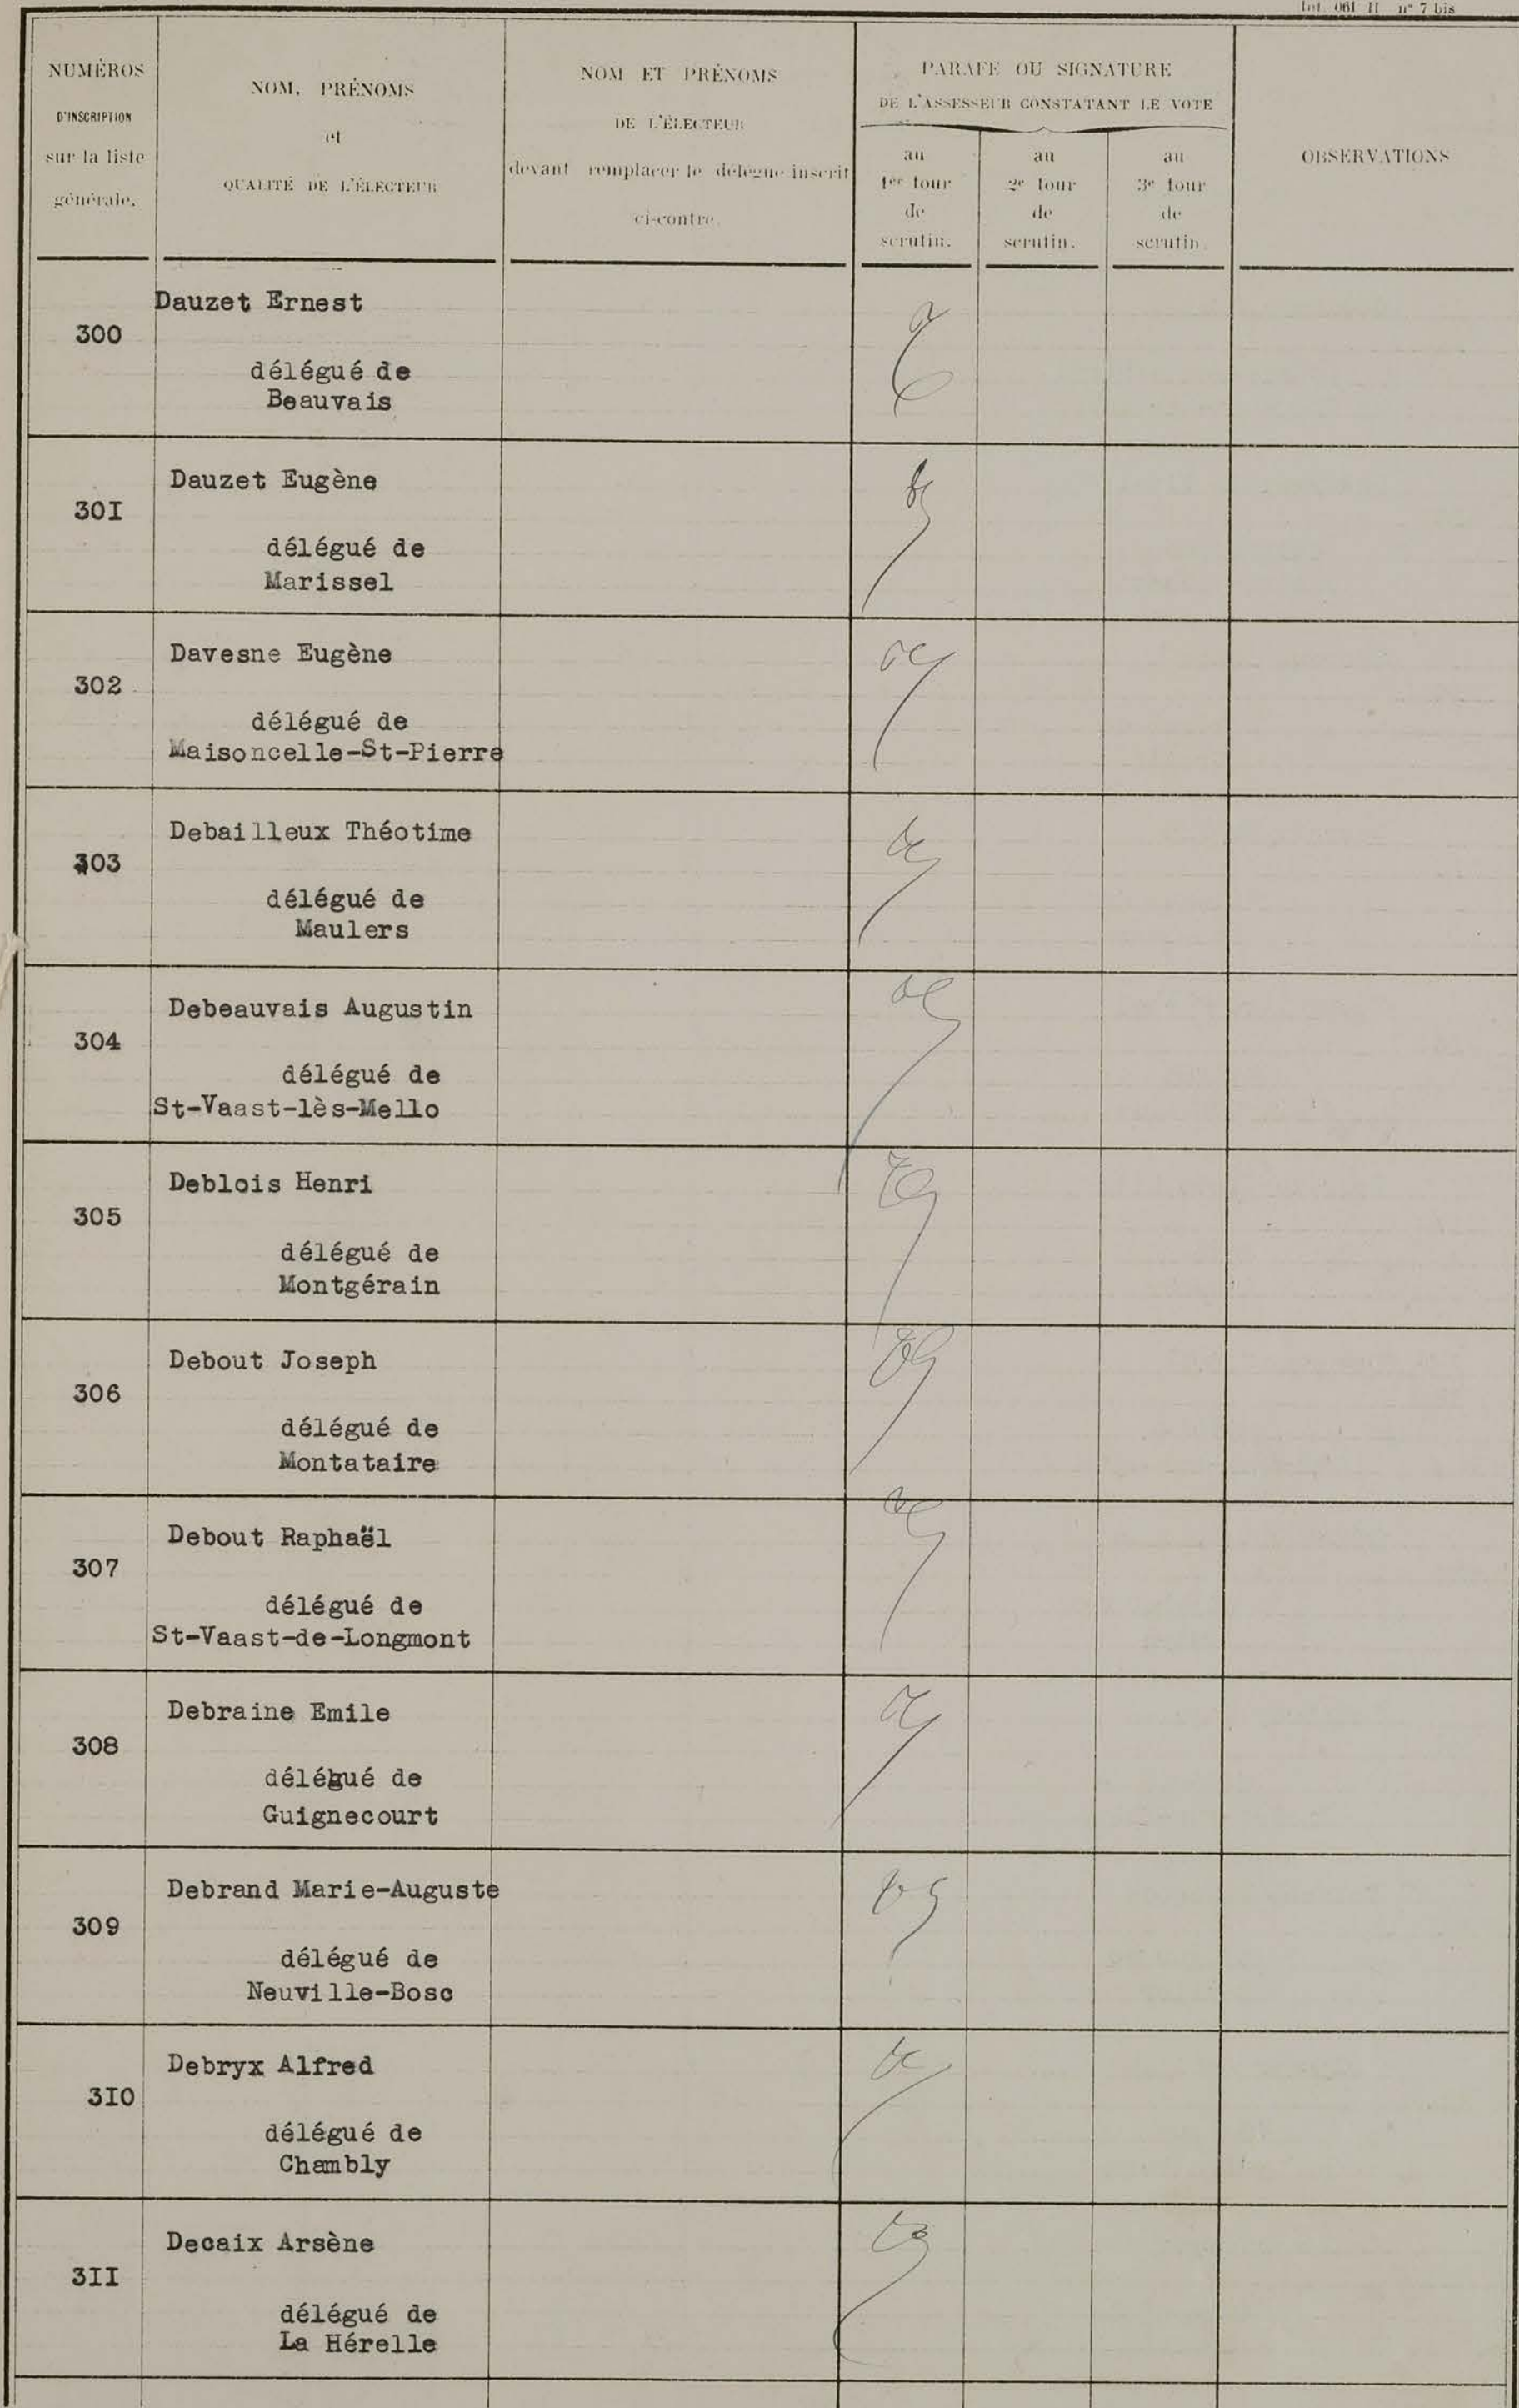 n° 7 bis
NUMÉROS
D'INSCRIPTION
sur la liste
générale.
NOM, PRÉNOMS
et
QUALITÉ DE L'ÉLECTEUR
NOM ET PRÉNOMS
DE L'ÉLECTEUR
devant remplacer le délégué inscrit
ci-contre.
PARAFE OU SIGNATURE
DE L'ASSESSEUR CONSTATANT LE VOTE
au
1er tour
de
scrutin.
au
2e tour
de
scrutin.
au
3e tour
de
scrutin.
OBSERVATIONS
300
Dauzet Ernest
délégué de
Beauvais
30I
Dauzet Eugène
délégué de
Marissel
302
Davesne Eugène
délégué de
Maisoncelle-St-Pierre
303
Debailleux Théotime
délégué de
Maulers
304
Debeauvais Augustin
délégué de
St-Vaast-lès-Mello
305
Deblois Henri
délégué de
Montgérain
306
Debout Joseph
délégué de
Montataire
307
Debout Raphaël
délégué de
St-Vaast-de-Longmont
308
Debraine Emile
délégué de
Guignecourt
309
Debrand Marie-Auguste
délégué de
Neuville-Bosc
3I0
Debryx Alfred
délégué de
Chambly
3II
Decaix Arsène
délégué de
La Hérelle